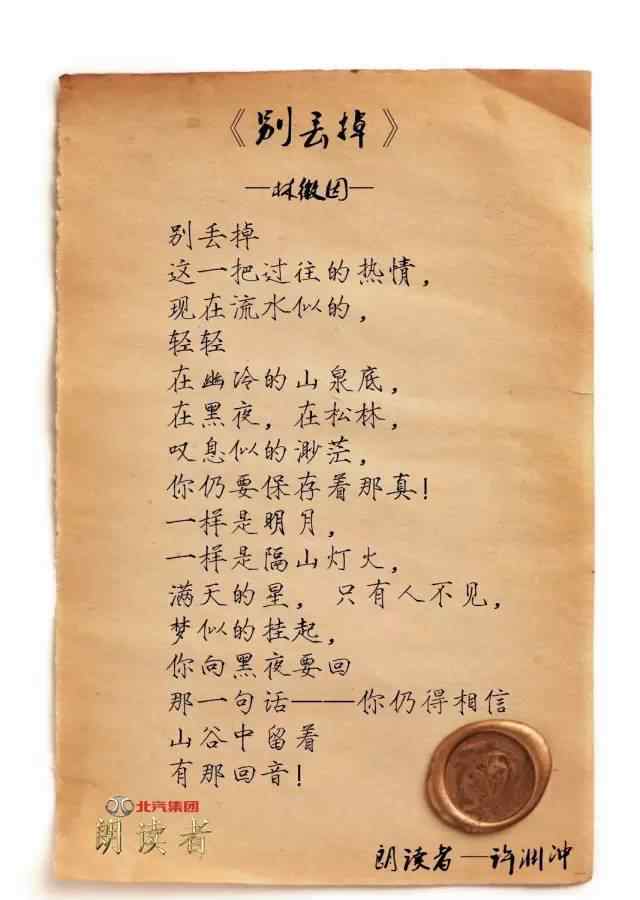 《别丢掉》
—林徽因—
别丢掉
这一把过往的热情，
现在流水似的，
轻轻
在幽冷的山泉底，
在黑夜，在松林，
叹息似的渺茫，
你仍要保存着那真！
一样是明月，
一样是隔山灯火，
满天的星，只有人不见，
梦似的挂起，
你向黑夜要回
那一句话——你仍得相信
山谷中留着
有那回音！
北汽集团
朗读者
朗读者—许渊冲